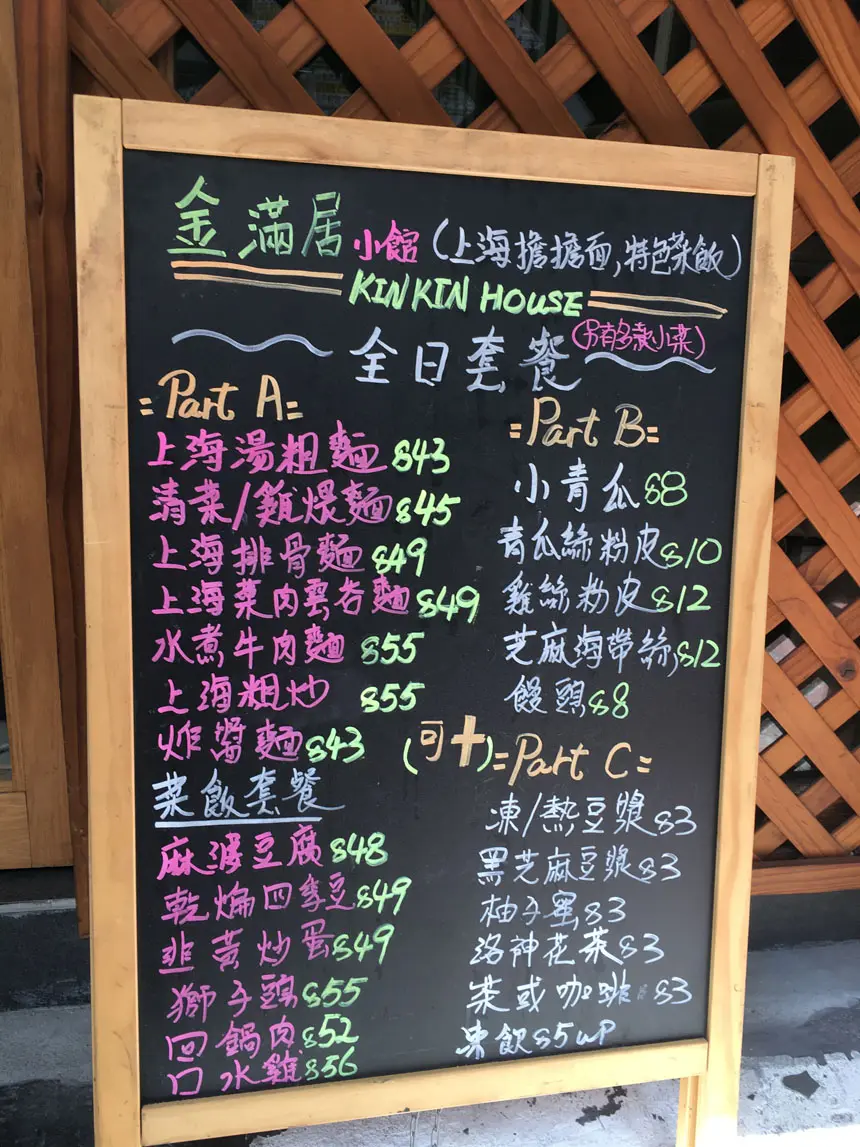 金滿居小館(上海擔擔面,特色菜飯)
KIN KIN HOUSE
(另有多款小菜)
全日套餐
=Part A=
上海湯粗麵 $43
清菜/雞煨麵 $45
上海排骨麵 $49
上海菜肉雲吞麵 $49
水煮牛肉麵 $55
上海粗炒 $55
炸醬麵 $43
菜飯套餐
麻婆豆腐 $48
乾煸四季豆 $49
韭黃炒蛋 $49
獅子頭 $55
回鍋肉 $52
口水雞 $56
=Part B=
小青瓜 $8
青瓜絲粉皮 $10
雞絲粉皮 $12
芝麻海帶絲 $12
饅頭 $8
(可+)=Part C=
凍/熱豆漿 $3
黑芝麻豆漿 $3
柚子蜜 $3
洛神花茶 $3
茶或咖啡 $3
凍飲 $5 up